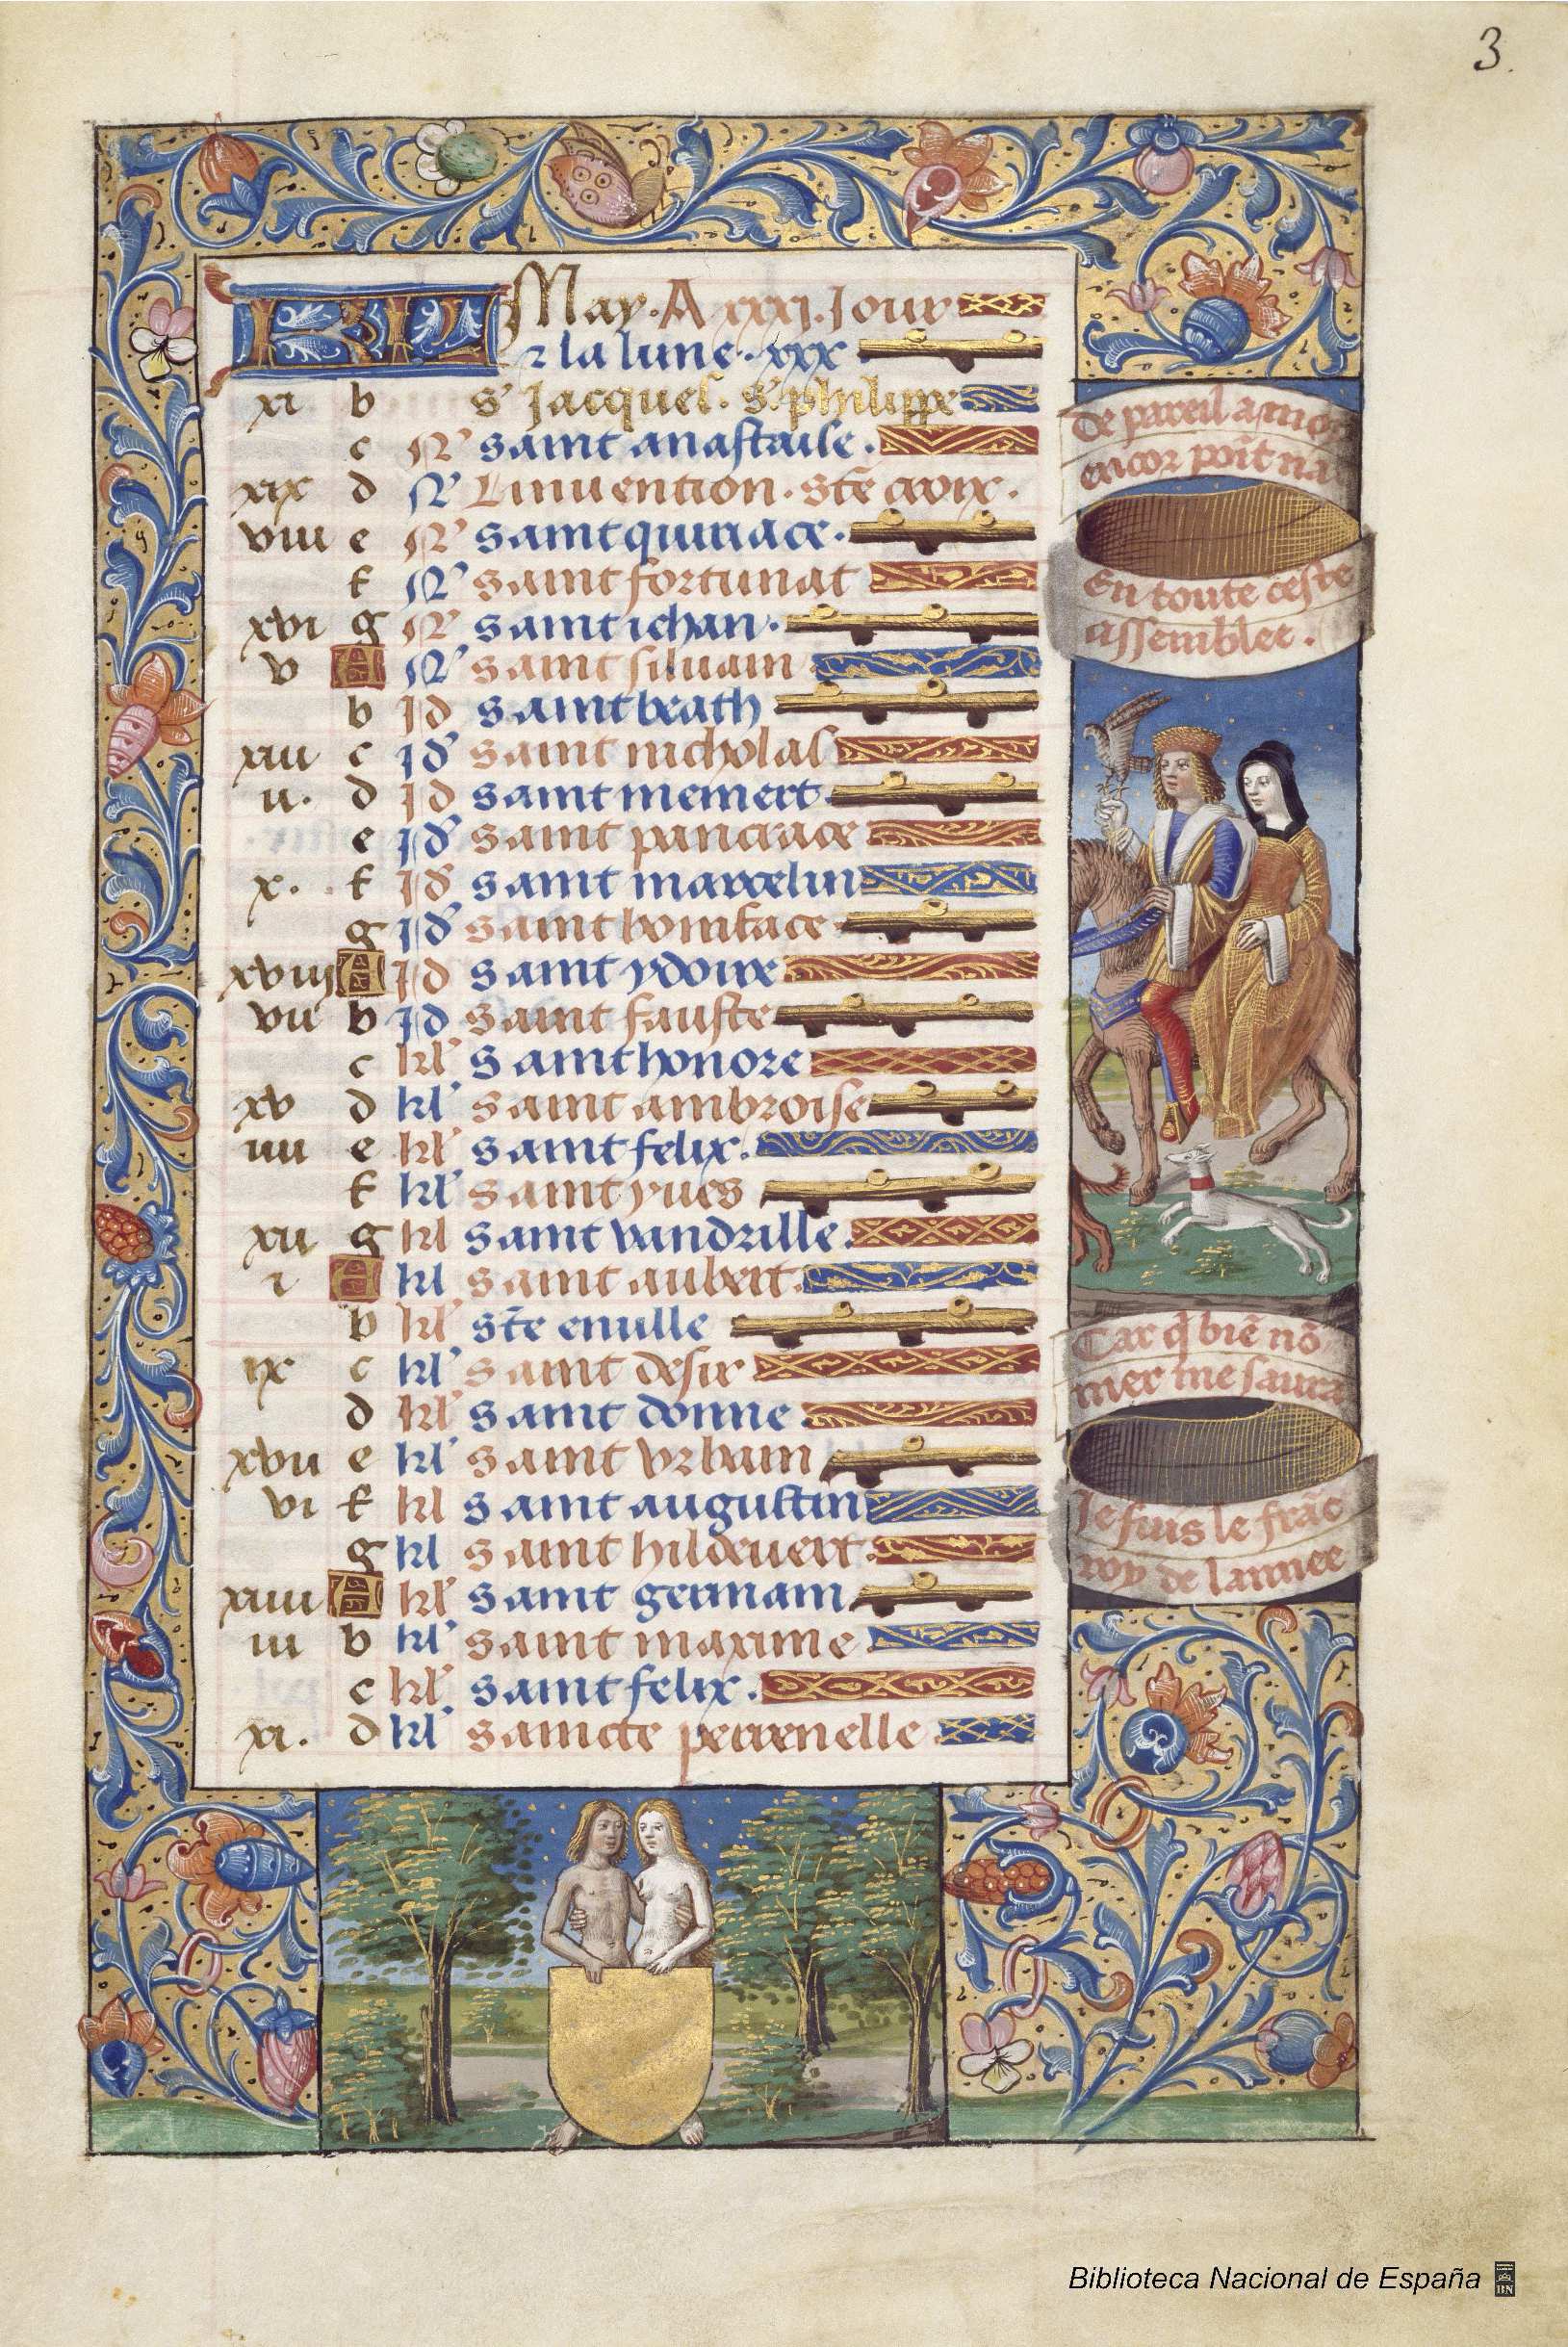 3.
KL May. A xxxj. Jour
⁊ la lune. xxx
xi b s' Jacques. S. phılıppe
c N' saint anastaise.
xix d N' Linuention. stē croix.
viii e N' saint quiriace.
f N' saint fortunat
xvi g N' saint iehan.
v A N' saint siluain
b Id saint beath
xiii c Id' saint nicholas
ii. d Id saint memert.
e Id' saint pancrace
x. f Id' saint marcelin
g Id' saint boniface
xviij A Id saint ydoire
vii b Id saint fauste
c kl' saint honore
xv d kl' saint ambroise
iiii e kl' saint felix.
f kl' saint yues
xii g kl saint vandrille.
i A kl saint aubert.
b kl' stē emille
ix c kl' saint desir
d kl' saint donne
xvii e kl' saint vrbain
vi f kl saint augustin
g kl saint hildeuert.
xiiii A kl' saint germain
iii b kl' saint maxime
c kl' saint felix.
xi. d kl' saincte perrenelle
De pareil amor
encor point na
En toute ceste
assemblee.
Car q̄ biē nō
mer me saura
Je suis le frāc
roy de lannee
Biblioteca Nacional de España
BN